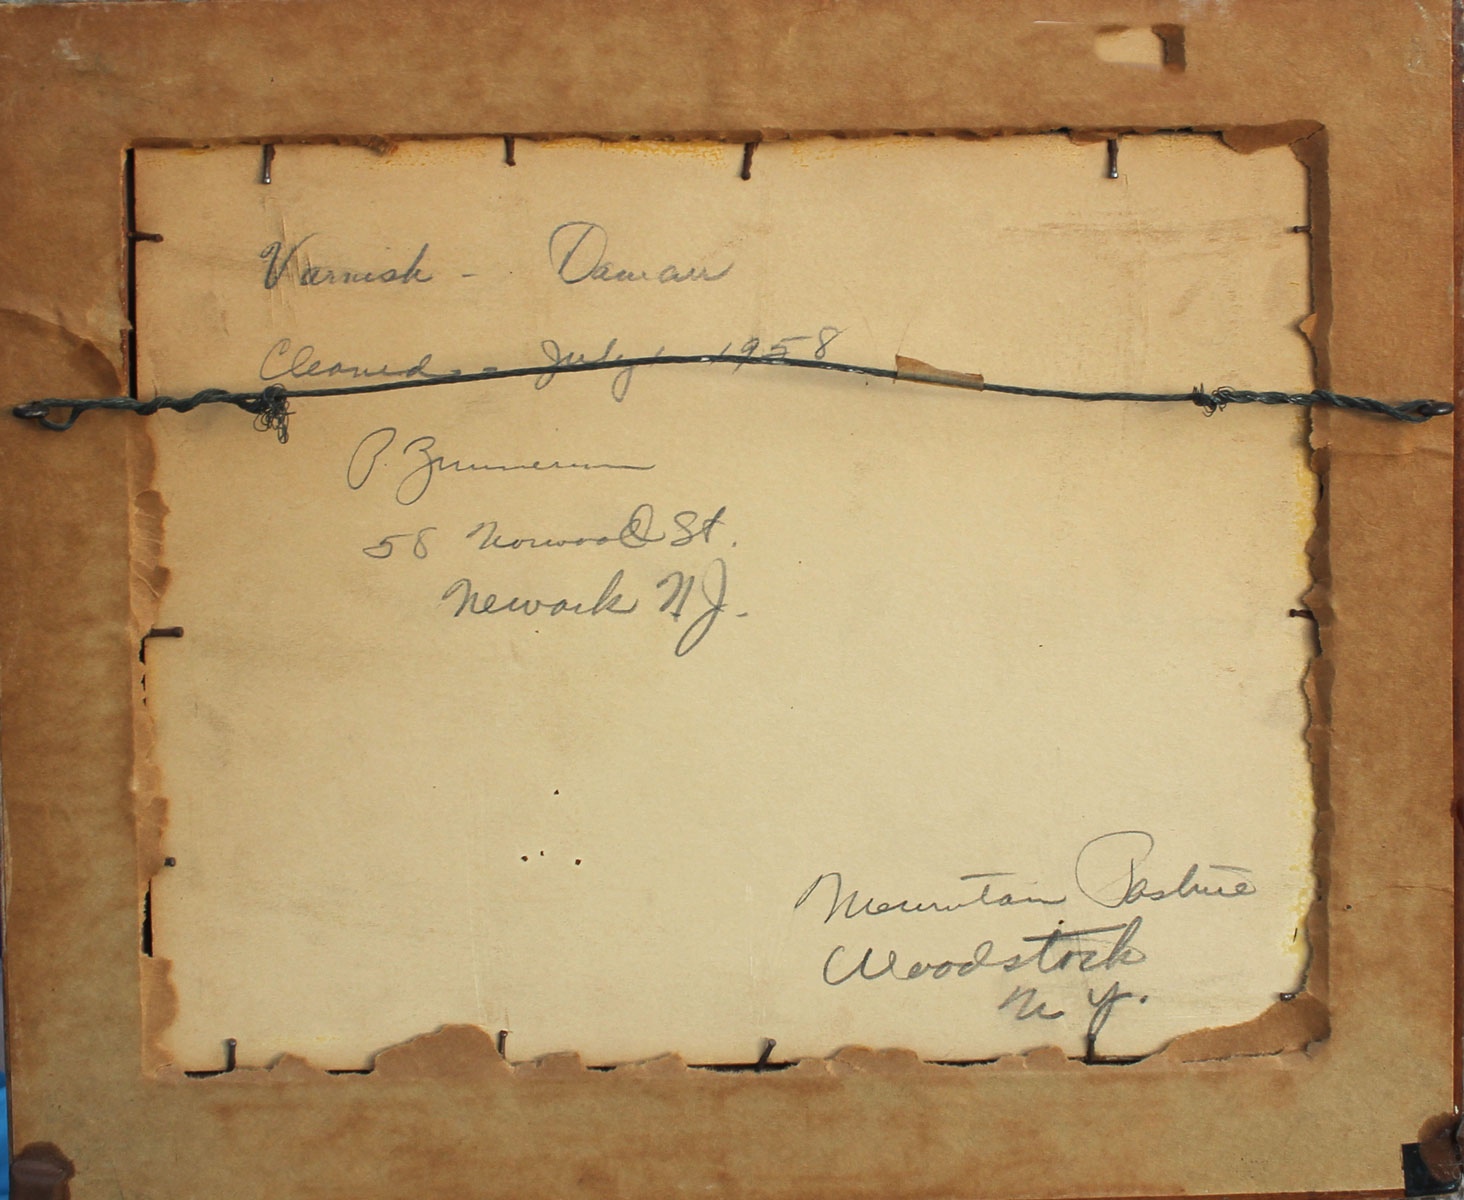 Varnish - Damarr
Cleaned - - July 1958
P. Zimmerman
58 Norwood St.
Newark N.J.
Mountain Pasture
Woodstock
N.Y.